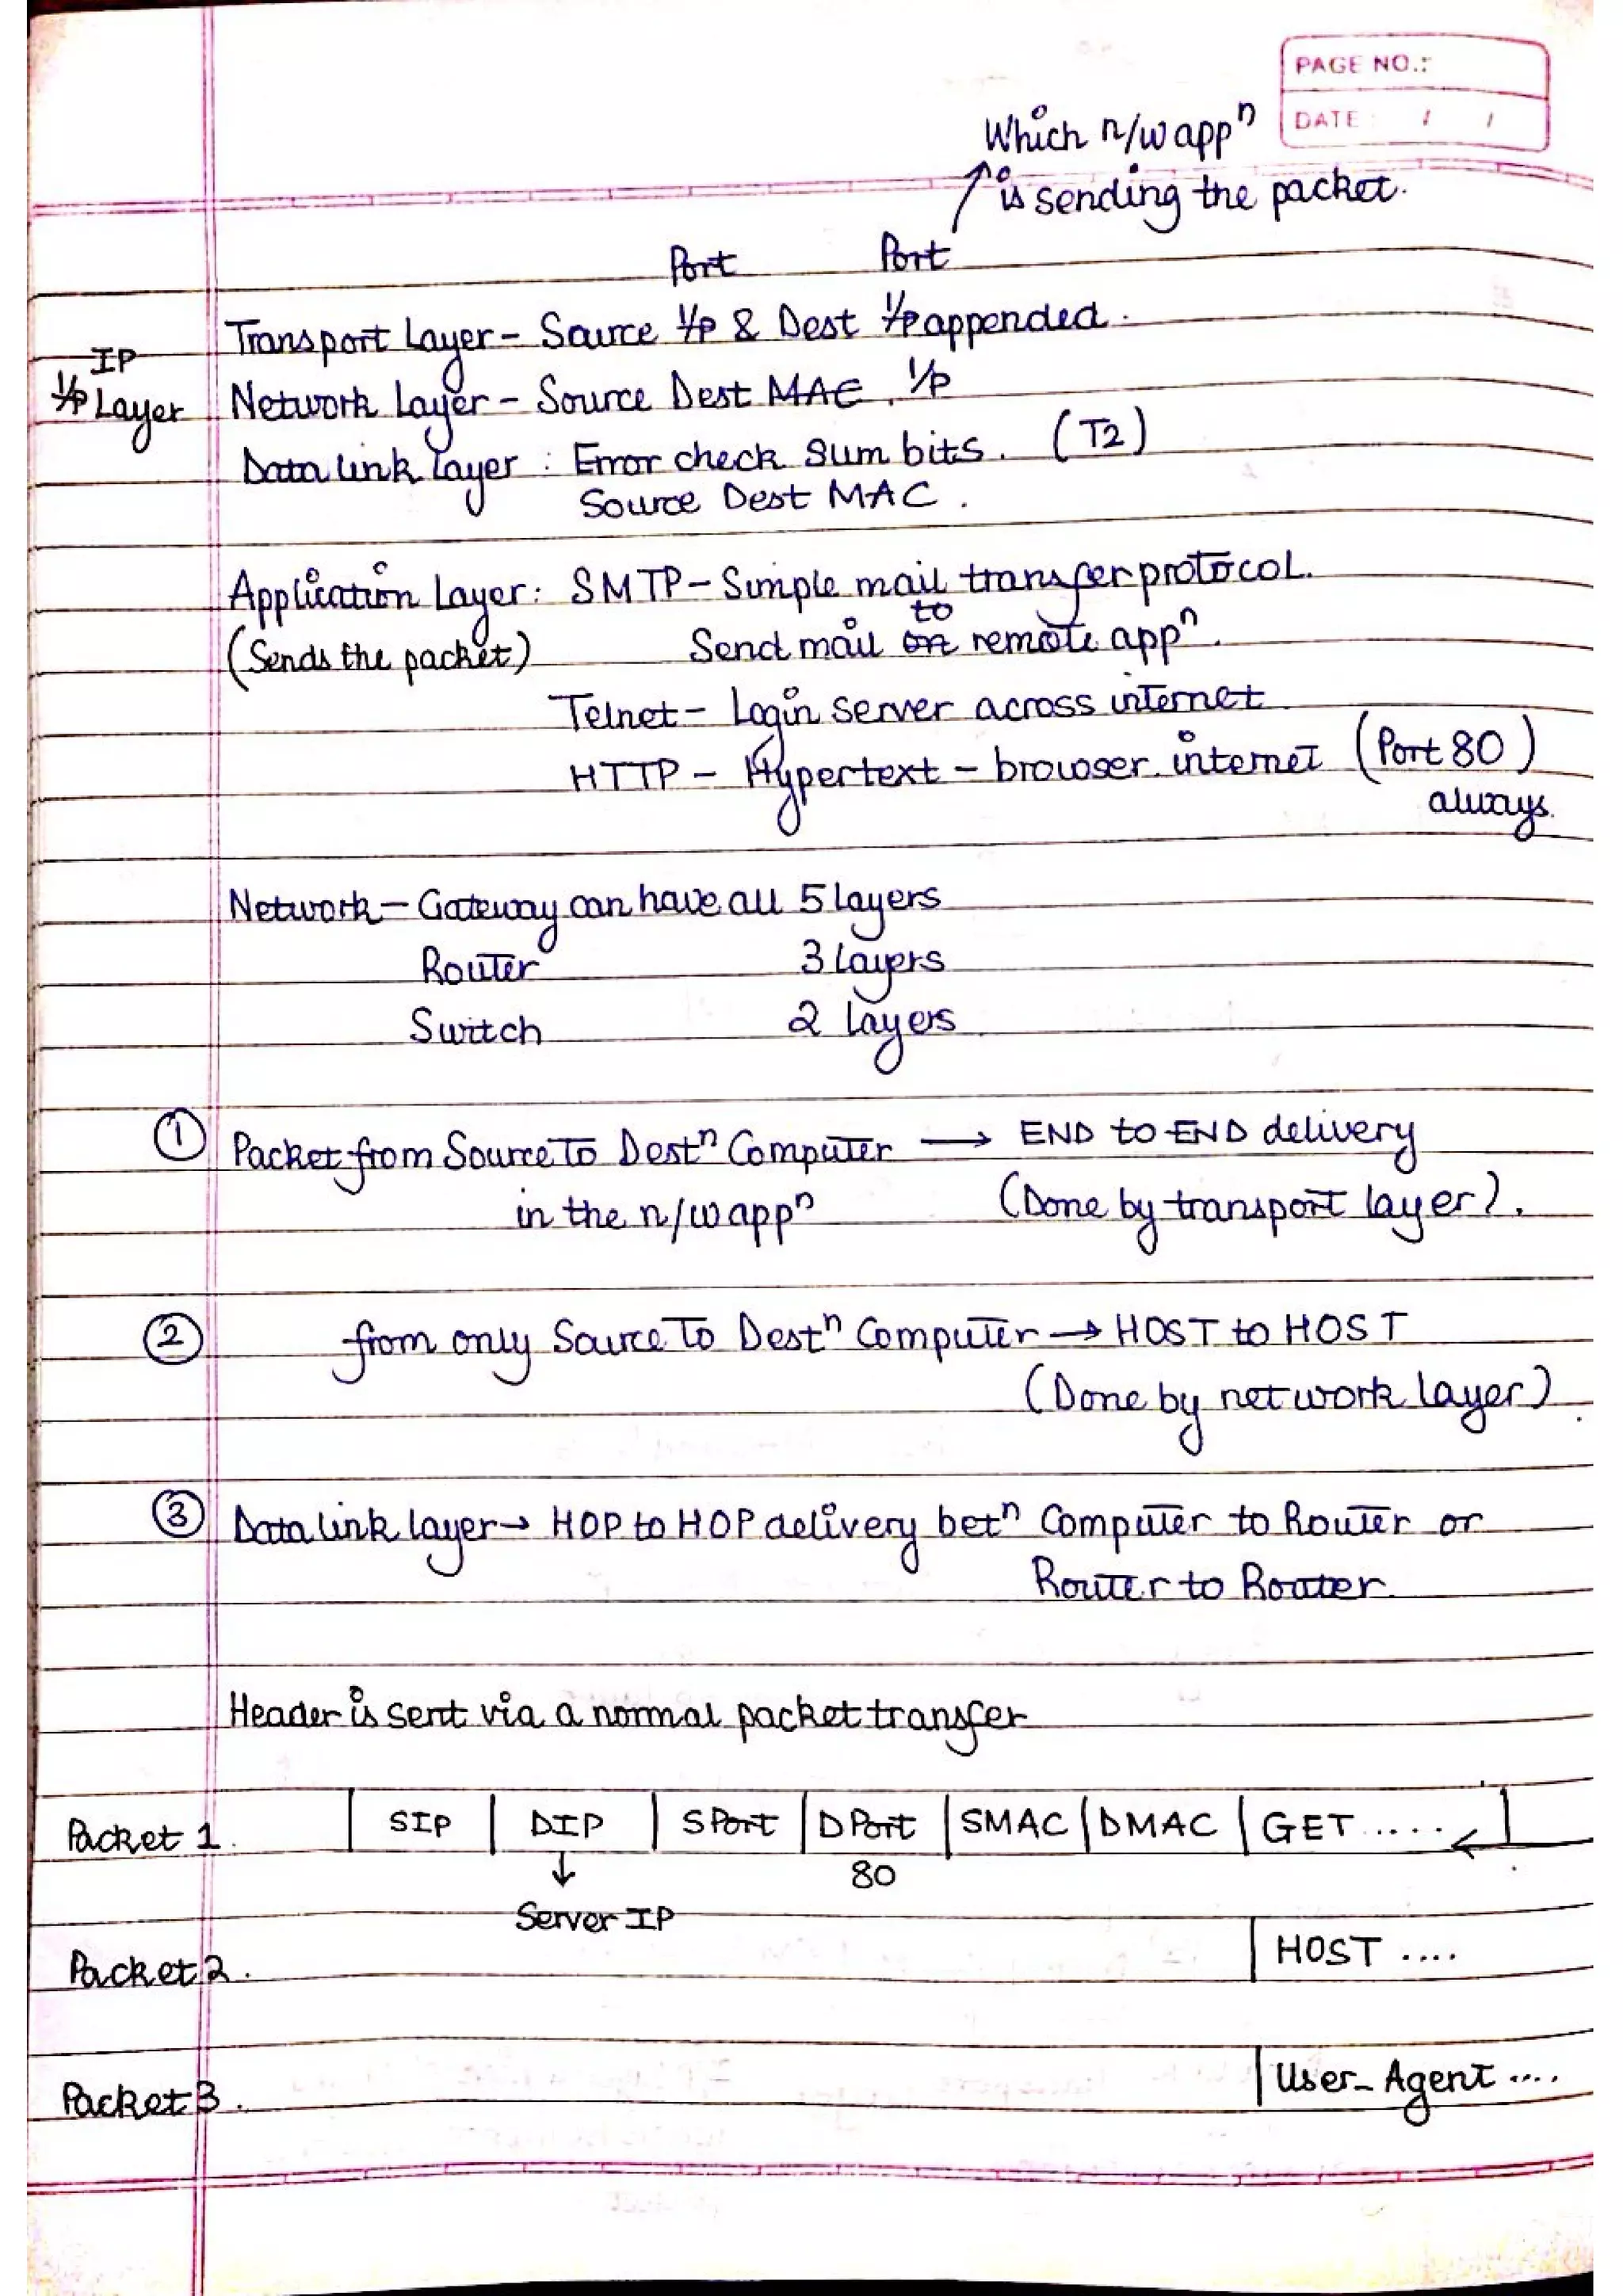 PAGE NO.:
DATE: / /
Which n/w appⁿ
is sending the packet.
Port Port
Transport Layer - Source I/P & Dest I/P appended.
IP
I/P Layer
Network Layer - Source Dest MAC. I/P
Data link layer : Error check sum bits. (T2)
Source Dest MAC.
Application Layer: SMTP - Simple mail transfer protocol.
to
(Sends the packet) Send mail on remote appⁿ.
Telnet - Login server across internet
HTTP - Hypertext - browser. internet (Port 80)
always.
Network - Gateway can have all 5 layers
Router 3 layers
Switch 2 layers
① Packet from Source To Destⁿ Computer → END to END delivery
in the n/w appⁿ (Done by transport layer).
② from only Source To Destⁿ Computer → HOST to HOST
(Done by network layer)
③ Data link layer → HOP to HOP delivery betⁿ Computer to Router or
Router to Router.
Header is sent via a normal packet transfer
Packet 1. | SIP | DIP | SPort | DPort | SMAC | DMAC | GET ..... |
↓ 80
Server IP
Packet 2. | HOST ....
Packet 3. | User-Agent ....